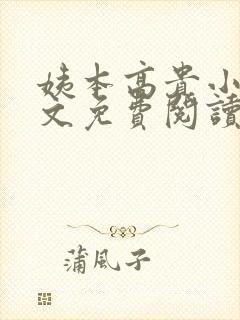 姨本高貴小
文免費閱讀
蒲風子